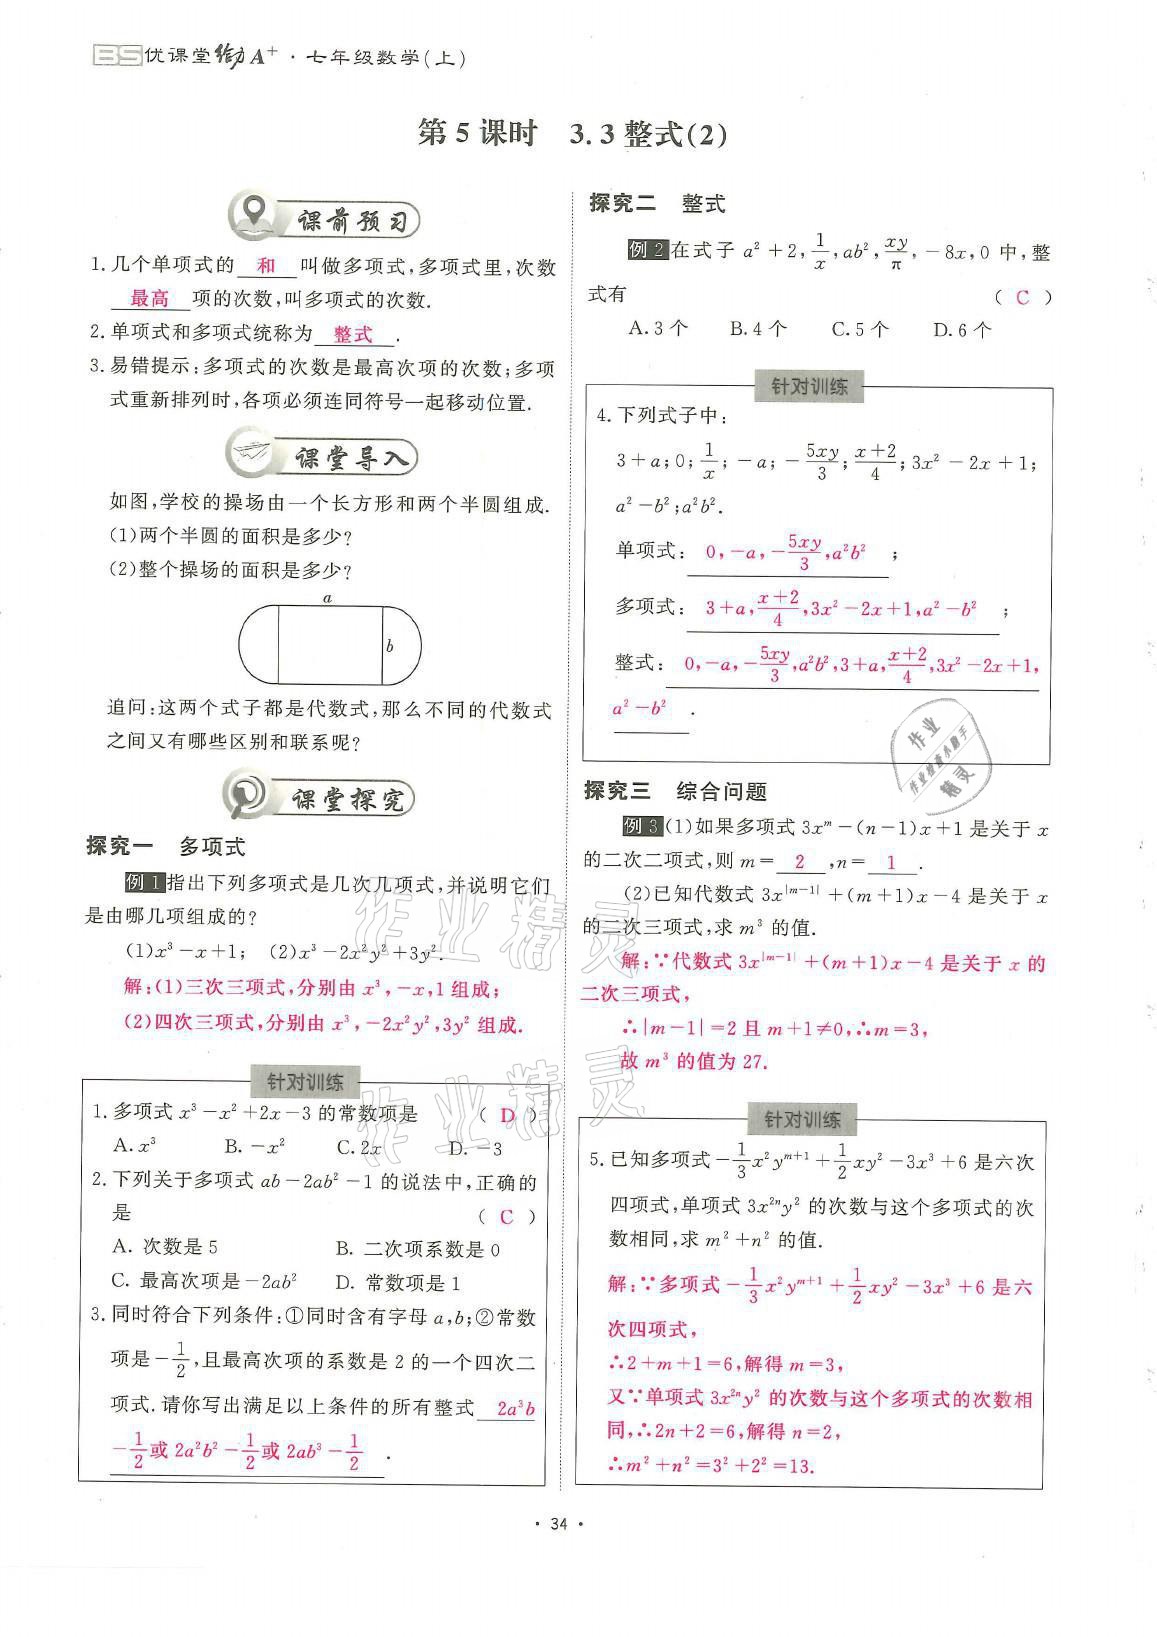 BS优课堂给力A⁺·七年级数学(上)
第5课时 3.3整式(2)
课前预习
1.几个单项式的 和 叫做多项式,多项式里,次数
最高 项的次数,叫多项式的次数.
2.单项式和多项式统称为 整式 .
3.易错提示:多项式的次数是最高次项的次数;多项
式重新排列时,各项必须连同符号一起移动位置.
课堂导入
如图,学校的操场由一个长方形和两个半圆组成.
(1)两个半圆的面积是多少?
(2)整个操场的面积是多少?
a
b
追问:这两个式子都是代数式,那么不同的代数式
之间又有哪些区别和联系呢?
课堂探究
探究一 多项式
例1 指出下列多项式是几次几项式,并说明它们
是由哪几项组成的?
(1)x³-x+1; (2)x³-2x²y²+3y².
解:(1)三次三项式,分别由 x³,-x,1 组成;
(2)四次三项式,分别由 x³,-2x²y²,3y² 组成.
针对训练
1.多项式 x³-x²+2x-3 的常数项是 ( D )
A.x³ B.-x² C.2x D.-3
2.下列关于多项式 ab-2ab²-1 的说法中,正确的
是 ( C )
A. 次数是5 B. 二次项系数是0
C. 最高次项是-2ab² D. 常数项是1
3.同时符合下列条件:①同时含有字母 a,b;②常数
项是-1/2,且最高次项的系数是2的一个四次二
项式.请你写出满足以上条件的所有整式 2a³b
-1/2或 2a²b²-1/2或 2ab³-1/2 .
探究二 整式
例2 在式子 a²+2,1/x,ab²,xy/π,-8x,0 中,整
式有 ( C )
A.3个 B.4个 C.5个 D.6个
针对训练
4.下列式子中:
3+a;0;1/x;-a;-5xy/3;(x+2)/4;3x²-2x+1;
a²-b²;a²b².
单项式: 0,-a,-5xy/3,a²b² ;
多项式: 3+a,(x+2)/4,3x²-2x+1,a²-b² ;
整式: 0,-a,-5xy/3,a²b²,3+a,(x+2)/4,3x²-2x+1,
a²-b² .
作业
作业检查小助手
精灵
探究三 综合问题
例3 (1)如果多项式 3xᵐ-(n-1)x+1 是关于 x
的二次二项式,则 m= 2 ,n= 1 .
(2)已知代数式 3x^|m-1|+(m+1)x-4 是关于 x
的二次三项式,求 m³ 的值.
解:∵代数式 3x^|m-1|+(m+1)x-4 是关于 x 的
二次三项式,
∴|m-1|=2 且 m+1≠0,∴m=3,
故 m³ 的值为 27.
针对训练
5.已知多项式-1/3x²y^(m+1)+1/2xy²-3x³+6 是六次
四项式,单项式 3x^(2n)y² 的次数与这个多项式的次
数相同,求 m²+n² 的值.
解:∵多项式-1/3x²y^(m+1)+1/2xy²-3x³+6 是六
次四项式,
∴2+m+1=6,解得 m=3,
又∵单项式 3x^(2n)y² 的次数与这个多项式的次数相
同,∴2n+2=6,解得 n=2,
∴m²+n²=3²+2²=13.
作业精灵
作业精灵
·34·